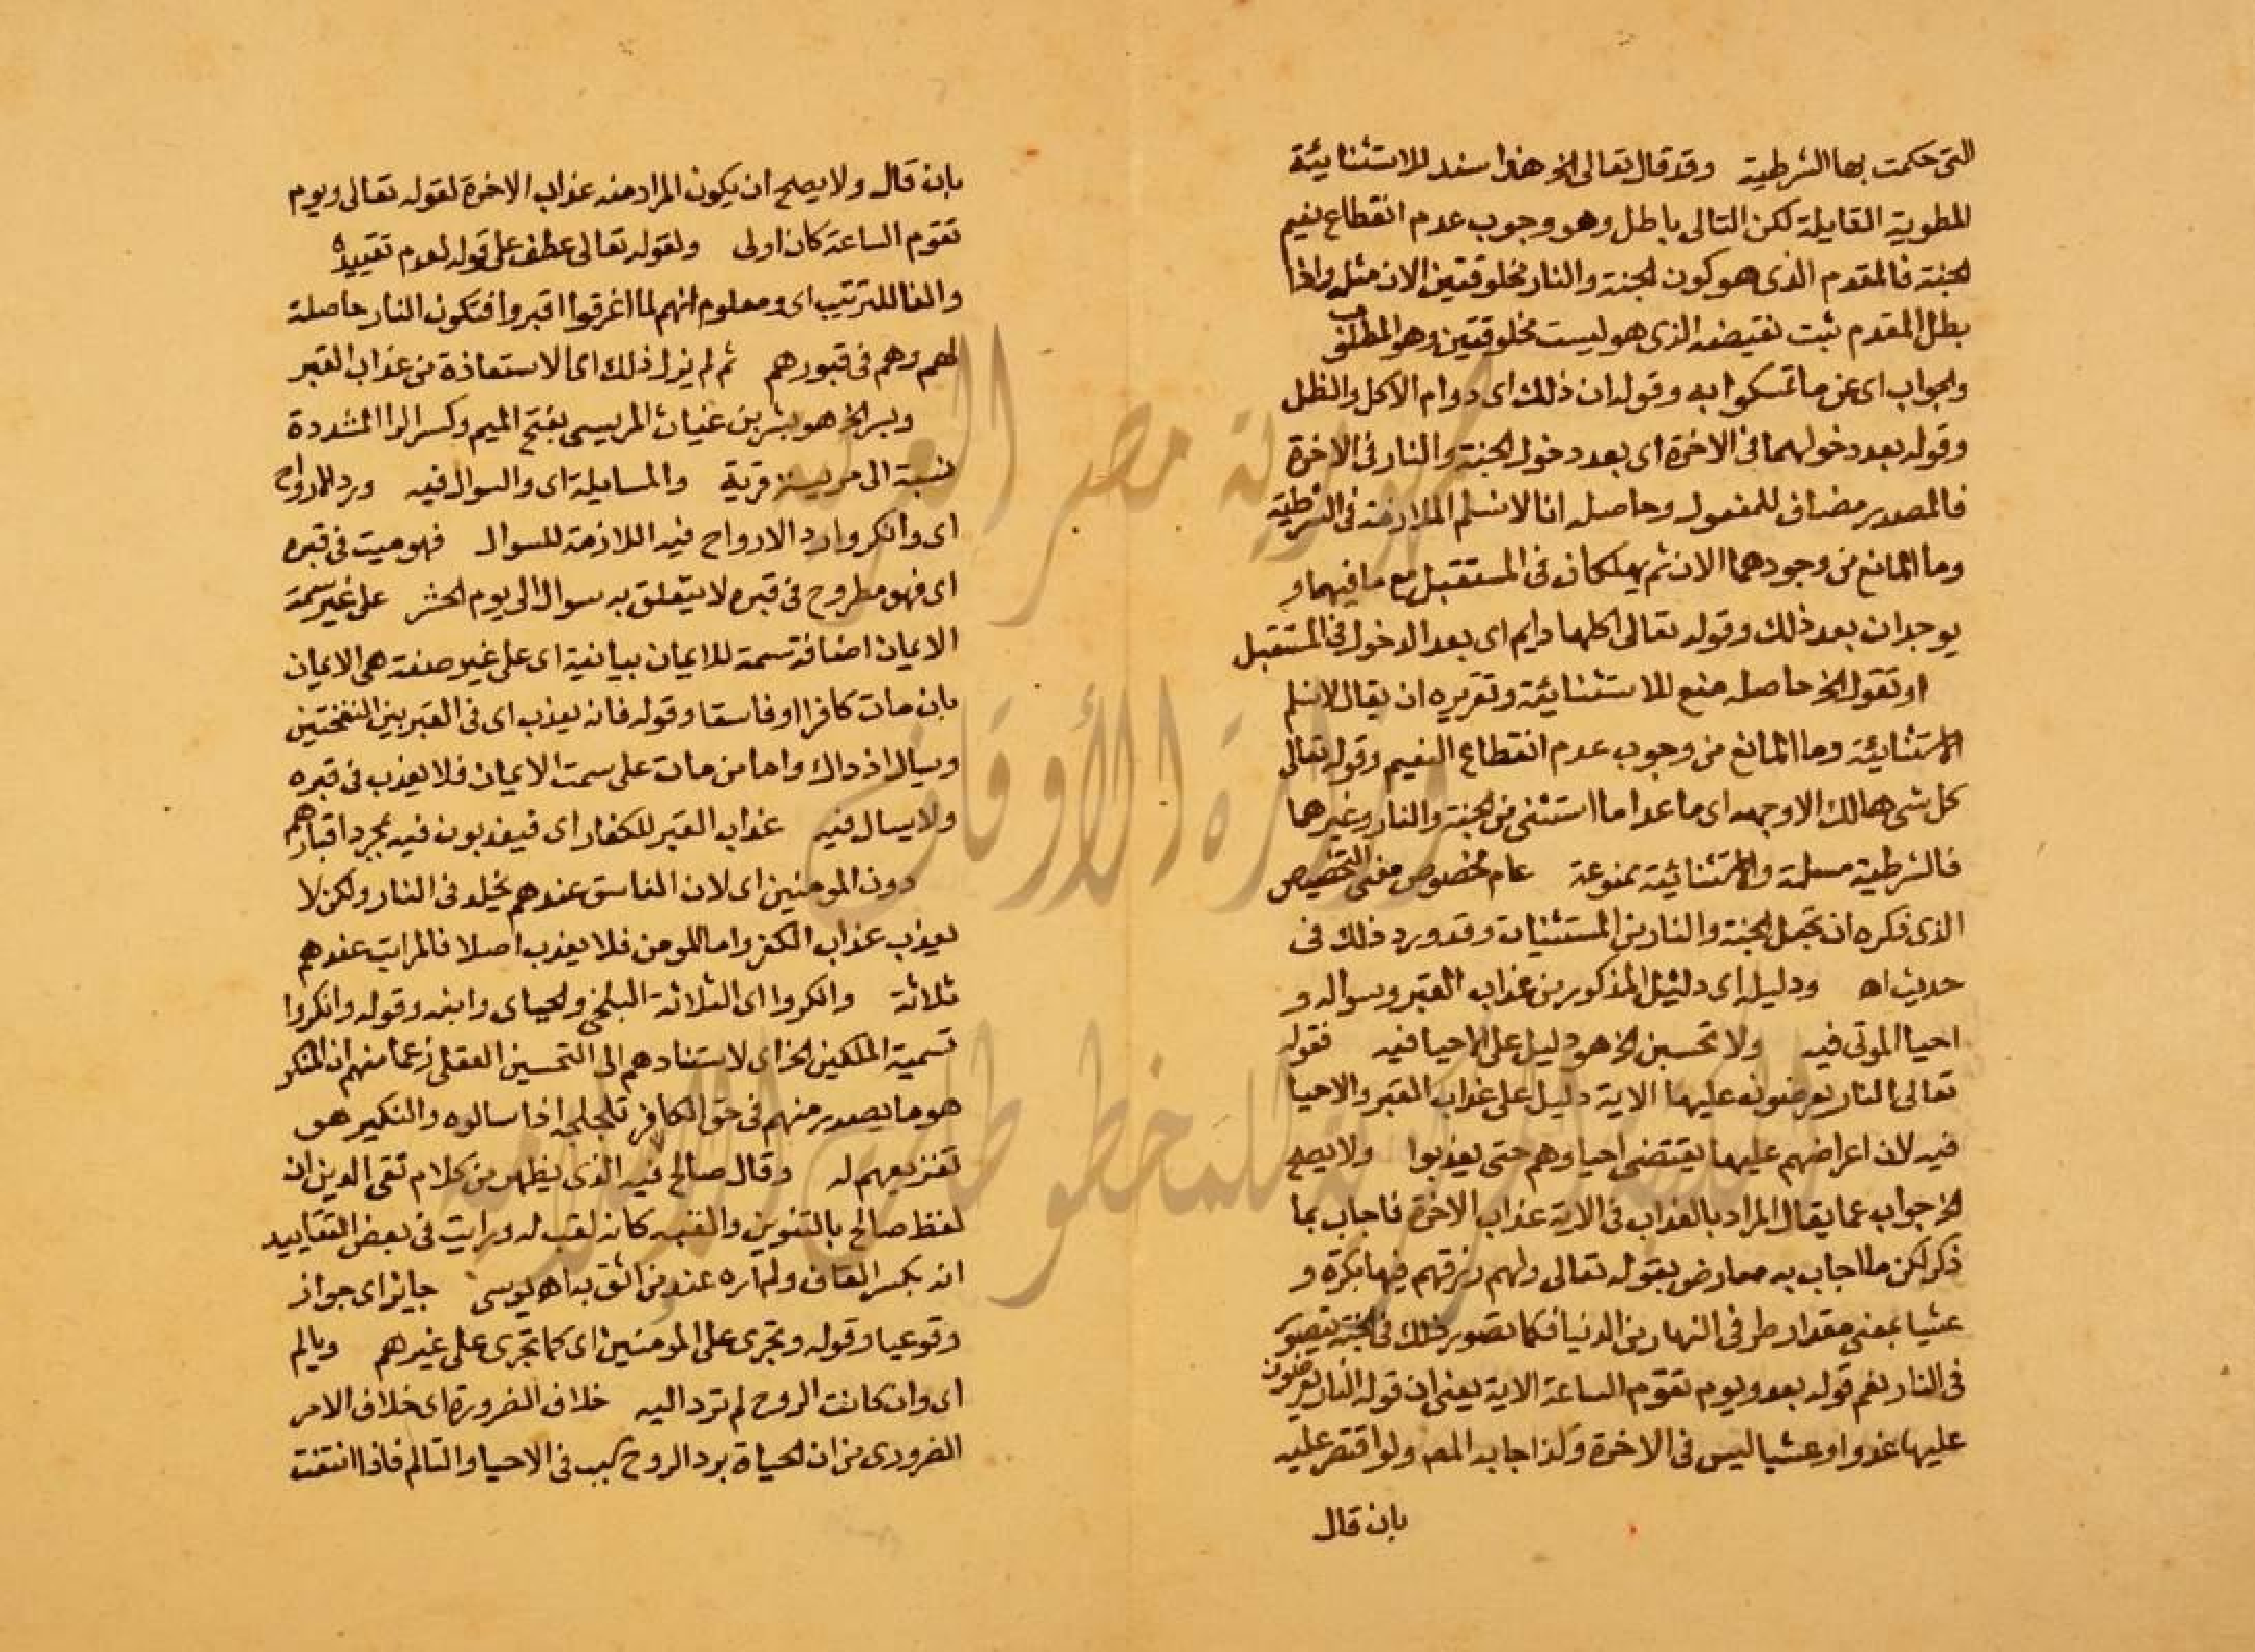 التى حكمت بها الشرطية وقد قال تعالى الخ هذا سند للاستثنائية
المطوية القايلة لكن التالى باطل وهو وجوب عدم انقطاع نعيم
الجنة فالمقدم الذى هو كون الجنة والنار مخلوقتين الان مثله واذا
بطل المقدم ثبت نقيضه الذى هو ليست مخلوقتين وهو المطلوب
والجواب اى عن ما تمسكوا به وقوله ان ذلك اى دوام الاكل والظل
وقوله بعد دخولهما فى الاخرة اى بعد دخول الجنة والنار فى الاخرة
فالمصدر مضاف للمفعول وحاصله انا لا نسلم الملازمة فى الشرطية
وما المانع من وجودهما الان ثم يهلكان فى المستقبل مع ما فيهما و
يوجدان بعد ذلك وقوله تعالى اكلها دايم اى بعد الدخول فى المستقبل
او نقول الخ حاصله منع للاستثنائية وتقريره ان يقال لا نسلم
الاستثنائية وما المانع من وجوب عدم انقطاع النعيم وقوله تعالى
كل شى هالك الا وجهه اى ما عدا ما استثنى من الجنة والنار وغيرهما
فالشرطية مسلمة والاستثنائية ممنوعة عام مخصوص معنى التخصيص
الذى ذكره ان تجعل الجنة والنار من المستثنيات وقد ورد ذلك فى
حديث اه ودليله اى دليل المذكور من عذاب القبر وسواله و
احيا الموتى فيه ولا تحسبن الخ هو دليل على الاحيا فيه فقوله
تعالى النار يعرضون عليها الاية دليل على عذاب القبر والاحيا
فيه لان اعراضهم عليها يقتضى احياوهم حتى يعذبوا ولا يصح
الخ جواب عما يقال المراد بالعذاب فى الاية عذاب الاخرة فاجاب بما
ذكر لكن ما اجاب به معارض بقوله تعالى ولهم رزقهم فيها بكرة و
عشيا بمعنى مقدار طرفى النهار من الدنيا فكما تصور ذلك فى الجنة يتصور
فى النار نعم قوله بعد ويوم تقوم الساعة الاية يعنى ان قوله النار يعرضون
عليها غدوا وعشيا ليس فى الاخرة ولذا اجاب به المص ولو اقتصر عليه
بان قال
بان قال ولا يصلح ان يكون المراد منه عذاب الاخرة لقوله تعالى ويوم
تقوم الساعة كان اولى ولقوله تعالى عطف على قوله لعدم تقييده
والفا للترتيب اى ومعلوم انهم لما اغرقوا اقبروا فتكون النار حاصلة
لهم وهم فى قبورهم ثم لم يزل ذلك اى الاستعاذة من عذاب القبر
وبسر الخ هو بشر بن غياث المريسى بفتح الميم وكسر الرا المشددة
نسبة الى مريسة قرية والمسايلة اى والسوال فيه ورد الارواح
اى وانكروا رد الارواح فيه اللازمة للسوال فهو ميت فى قبره
اى فهو مطروح فى قبره لا يتعلق به سوال الى يوم الحشر على غير سمة
الايمان اضافة سمة للايمان بيانية اى على غير صفة هى الايمان
بان مات كافرا او فاسقا وقوله فانه يعذب اى فى القبر بين النفختين
ويسال اذ ذاك واما من مات على سمت الايمان فلا يعذب فى قبره
ولا يسال فيه عذاب القبر للكفار اى فيعذبون فيه بمجرد اقبارهم
دون المومنين اى لان الفاسق عندهم يخلد فى النار ولكن لا
يعذب عذاب الكفر واما المومن فلا يعذب اصلا فالمراتب عندهم
ثلاثة وانكروا اى الثلاثة البلخى والجباى وابنه وقوله وانكروا
تسمية الملكين الخ اى لاستنادهم الى التحسين العقلى زعما منهم ان المنكر
هو ما يصدر منهم فى حق الكافر تلجلجه اذا سالوه والنكير هو
تفزيعهم له وقال صالح فيه الذى يظهر من كلام تقى الدين ان
لفظ صالح بالتنوين والقبه كانه لقب له ورايت فى بعض التقاييد
انه بكسر القاف ولم اره عند من اثق به اه يوسى جايز اى جواز
وقوعيا وقوله وتجرى على المومنين اى كما تجرى على غيرهم ويالم
اى وان كانت الروح لم ترد اليه خلاف الضرورة اى خلاف الامر
الضرورى من ان الحياة برد الروح سبب فى الاحيا والتالم فاذا انتفت